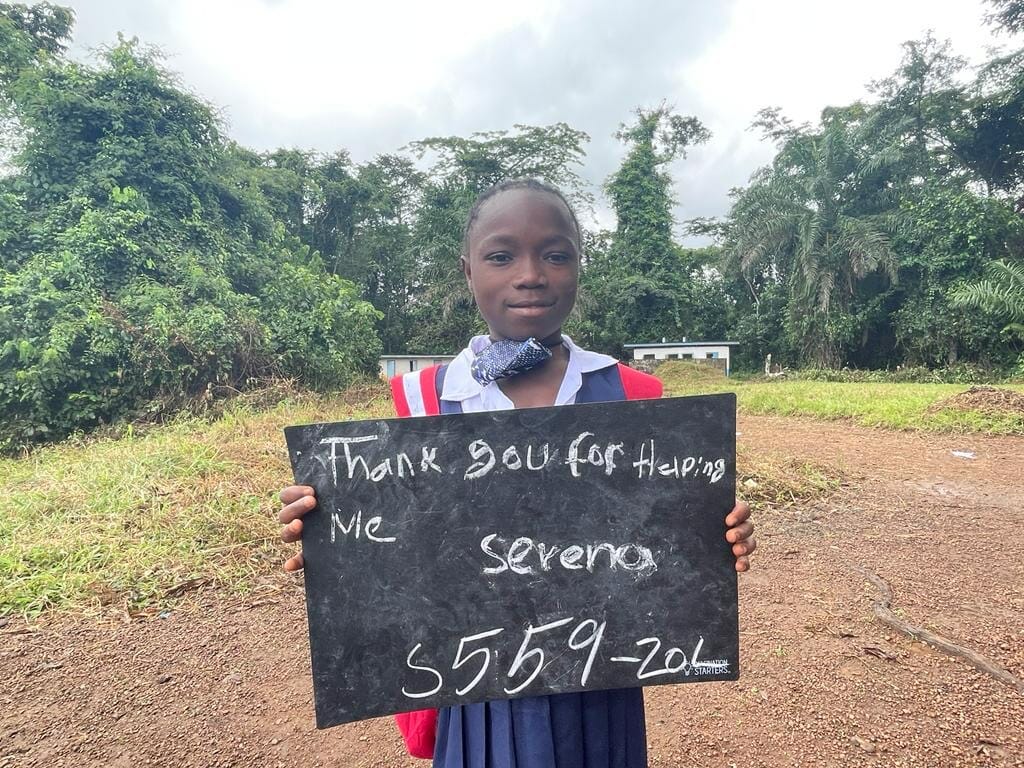 Thank you for Helping
Me
serena
S559-201
IMAGINATION
STARTERS